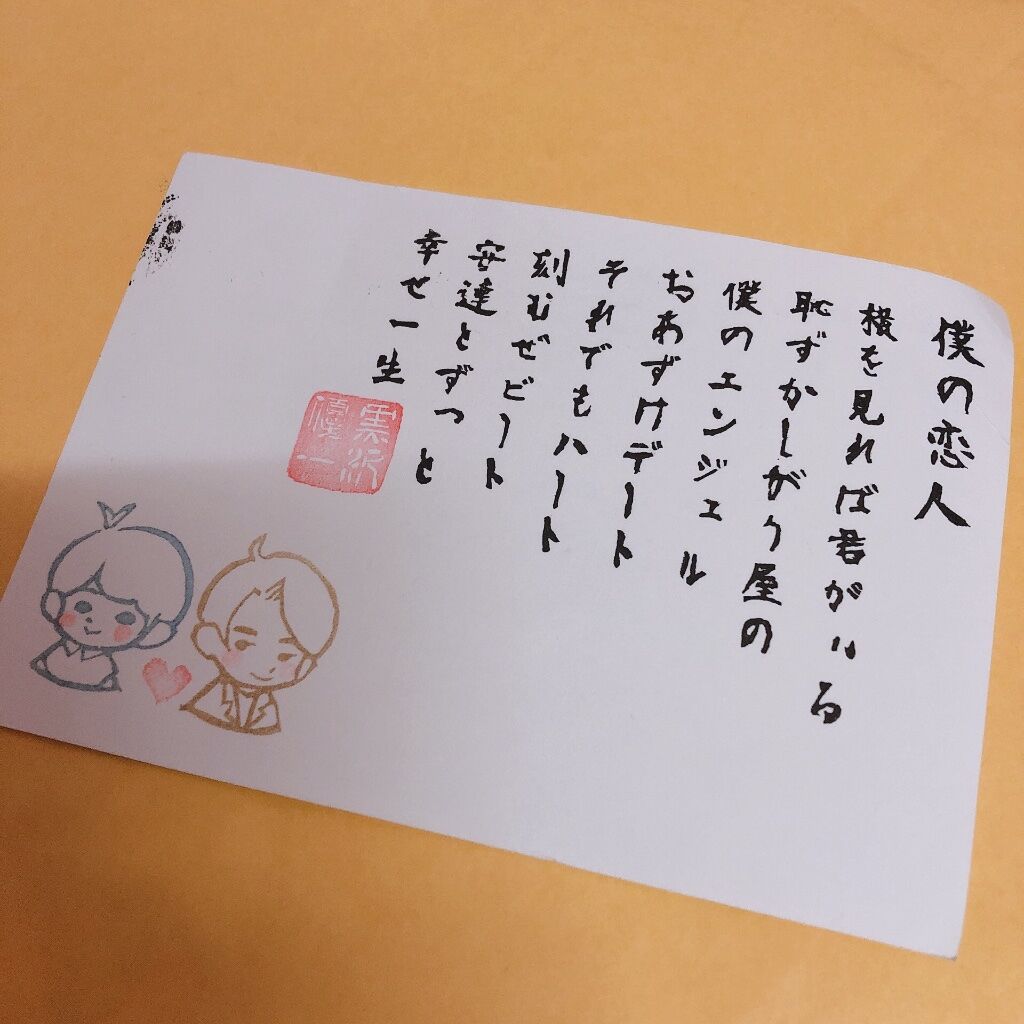 僕の恋人
横を見れば君がいる
恥ずかしがり屋の
僕のエンジェル
おあずけデート
それでもハート
刻むぜビート
安達とずっと
幸せ一生
黒沢
優一